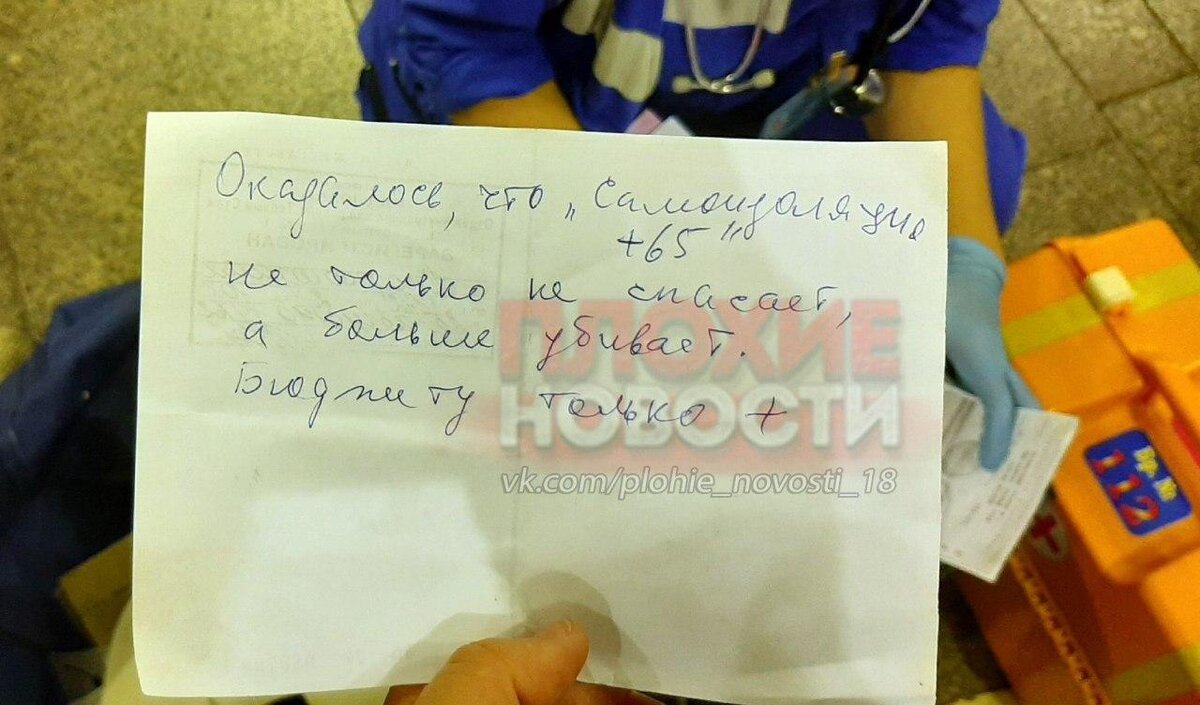 Оказалось, что „Самоизоляция
+65"
не только не спасает,
а больше убивает.
Бюджету только +
ПЛОХИЕ
НОВОСТИ
vk.com/plohie_novosti_18
Бр. №
112